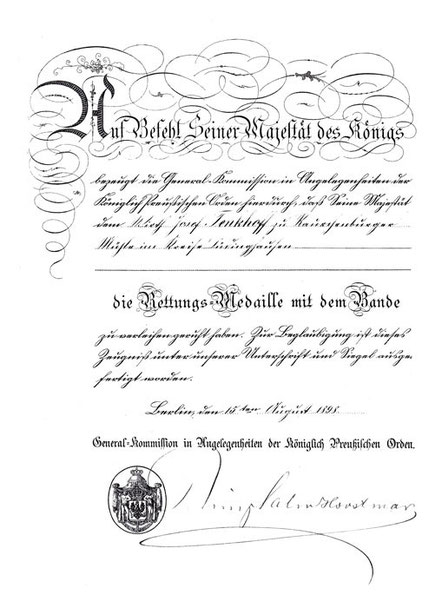 Auf Befehl Seiner Majestät des Königs
bezeugt die General-Kommission in Angelegenheiten der
Königlich Preußischen Orden hierdurch, daß Seine Majestät
dem Wirth Josef Tenkhoff zu Rauschenburger
Mühle im Kreise Lüdinghausen
die Rettungs-Medaille mit dem Bande
zu verleihen geruht haben. Zur Beglaubigung ist dieses
Zeugniß unter unserer Unterschrift und Siegel ausge-
fertigt worden.
Berlin, den 15ten August 1898.
General-Kommission in Angelegenheiten der Königlich Preußischen Orden.
Salm Horstmar